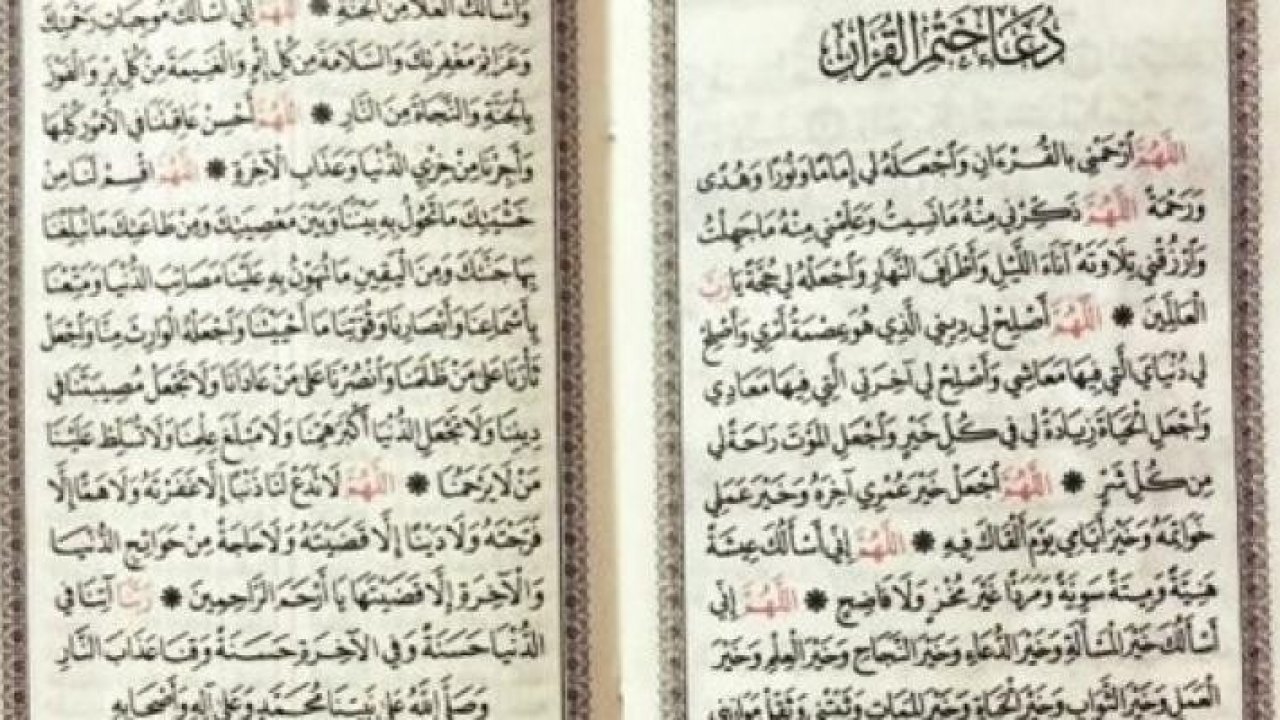 دُعَاءُ خَتْمِ الْقُرْآنِ
اللَّهُمَّ ارْحَمْنِي بِالْقُرْءَانِ وَاجْعَلْهُ لِي إِمَامًا وَنُورًا وَهُدًى
وَرَحْمَةً اللَّهُمَّ ذَكِّرْنِي مِنْهُ مَانَسِيتُ وَعَلِّمْنِي مِنْهُ مَاجَهِلْتُ
وَارْزُقْنِي تِلَاوَتَهُ آنَاءَ اللَّيْلِ وَأَطْرَافَ النَّهَارِ وَاجْعَلْهُ لِي حُجَّةً يَارَبَّ
الْعَالَمِينَ * اللَّهُمَّ أَصْلِحْ لِي دِينِي الَّذِي هُوَ عِصْمَةُ أَمْرِي وَأَصْلِحْ
لِي دُنْيَايَ الَّتِي فِيهَا مَعَاشِي وَأَصْلِحْ لِي آخِرَتِي الَّتِي فِيهَا مَعَادِي
وَاجْعَلِ الْحَيَاةَ زِيَادَةً لِي فِي كُلِّ خَيْرٍ وَاجْعَلِ الْمَوْتَ رَاحَةً لِي
مِنْ كُلِّ شَرٍّ * اللَّهُمَّ اجْعَلْ خَيْرَ عُمْرِي آخِرَهُ وَخَيْرَ عَمَلِي
خَوَاتِمَهُ وَخَيْرَ أَيَّامِي يَوْمَ أَلْقَاكَ فِيهِ * اللَّهُمَّ إِنِّي أَسْأَلُكَ عِيشَةً
هَنِيَّةً وَمِيتَةً سَوِيَّةً وَمَرَدًّا غَيْرَ مُخْزٍ وَلَا فَاضِحٍ * اللَّهُمَّ إِنِّي
أَسْأَلُكَ خَيْرَ الْمَسْأَلَةِ وَخَيْرَ الدُّعَاءِ وَخَيْرَ النَّجَاحِ وَخَيْرَ الْعِلْمِ وَخَيْرَ
الْعَمَلِ وَخَيْرَ الثَّوَابِ وَخَيْرَ الْحَيَاةِ وَخَيْرَ الْمَمَاتِ وَثَبِّتْنِي وَثَقِّلْ مَوَازِينِي
وَأَسْأَلُكَ الْعُلَا مِنَ الْجَنَّةِ * اللَّهُمَّ إِنِّي أَسْأَلُكَ مُوجِبَاتِ رَحْمَتِكَ
وَعَزَائِمَ مَغْفِرَتِكَ وَالسَّلَامَةَ مِنْ كُلِّ إِثْمٍ وَالْغَنِيمَةَ مِنْ كُلِّ بِرٍّ وَالْفَوْزَ
بِالْجَنَّةِ وَالنَّجَاةَ مِنَ النَّارِ * اللَّهُمَّ أَحْسِنْ عَاقِبَتَنَا فِي الْأُمُورِ كُلِّهَا
وَأَجِرْنَا مِنْ خِزْيِ الدُّنْيَا وَعَذَابِ الْآخِرَةِ * اللَّهُمَّ اقْسِمْ لَنَا مِنْ
خَشْيَتِكَ مَا تَحُولُ بِهِ بَيْنَنَا وَبَيْنَ مَعْصِيَتِكَ وَمِنْ طَاعَتِكَ مَا تُبَلِّغُنَا
بِهَا جَنَّتَكَ وَمِنَ الْيَقِينِ مَا تُهَوِّنُ بِهِ عَلَيْنَا مَصَائِبَ الدُّنْيَا وَمَتِّعْنَا
بِأَسْمَاعِنَا وَأَبْصَارِنَا وَقُوَّتِنَا مَا أَحْيَيْتَنَا وَاجْعَلْهُ الْوَارِثَ مِنَّا وَاجْعَلْ
ثَأْرَنَا عَلَى مَنْ ظَلَمَنَا وَانْصُرْنَا عَلَى مَنْ عَادَانَا وَلَا تَجْعَلْ مُصِيبَتَنَا فِي
دِينِنَا وَلَا تَجْعَلِ الدُّنْيَا أَكْبَرَ هَمِّنَا وَلَا مَبْلَغَ عِلْمِنَا وَلَا تُسَلِّطْ عَلَيْنَا
مَنْ لَا يَرْحَمُنَا * اللَّهُمَّ لَا تَدَعْ لَنَا ذَنْبًا إِلَّا غَفَرْتَهُ وَلَا هَمًّا إِلَّا
فَرَّجْتَهُ وَلَا دَيْنًا إِلَّا قَضَيْتَهُ وَلَا حَاجَةً مِنْ حَوَائِجِ الدُّنْيَا
وَالْآخِرَةِ إِلَّا قَضَيْتَهَا يَا أَرْحَمَ الرَّاحِمِينَ * رَبَّنَا آتِنَا فِي
الدُّنْيَا حَسَنَةً وَفِي الْآخِرَةِ حَسَنَةً وَقِنَا عَذَابَ النَّارِ
وَصَلَّى اللَّهُ عَلَى نَبِيِّنَا مُحَمَّدٍ وَعَلَى آلِهِ وَأَصْحَابِهِ